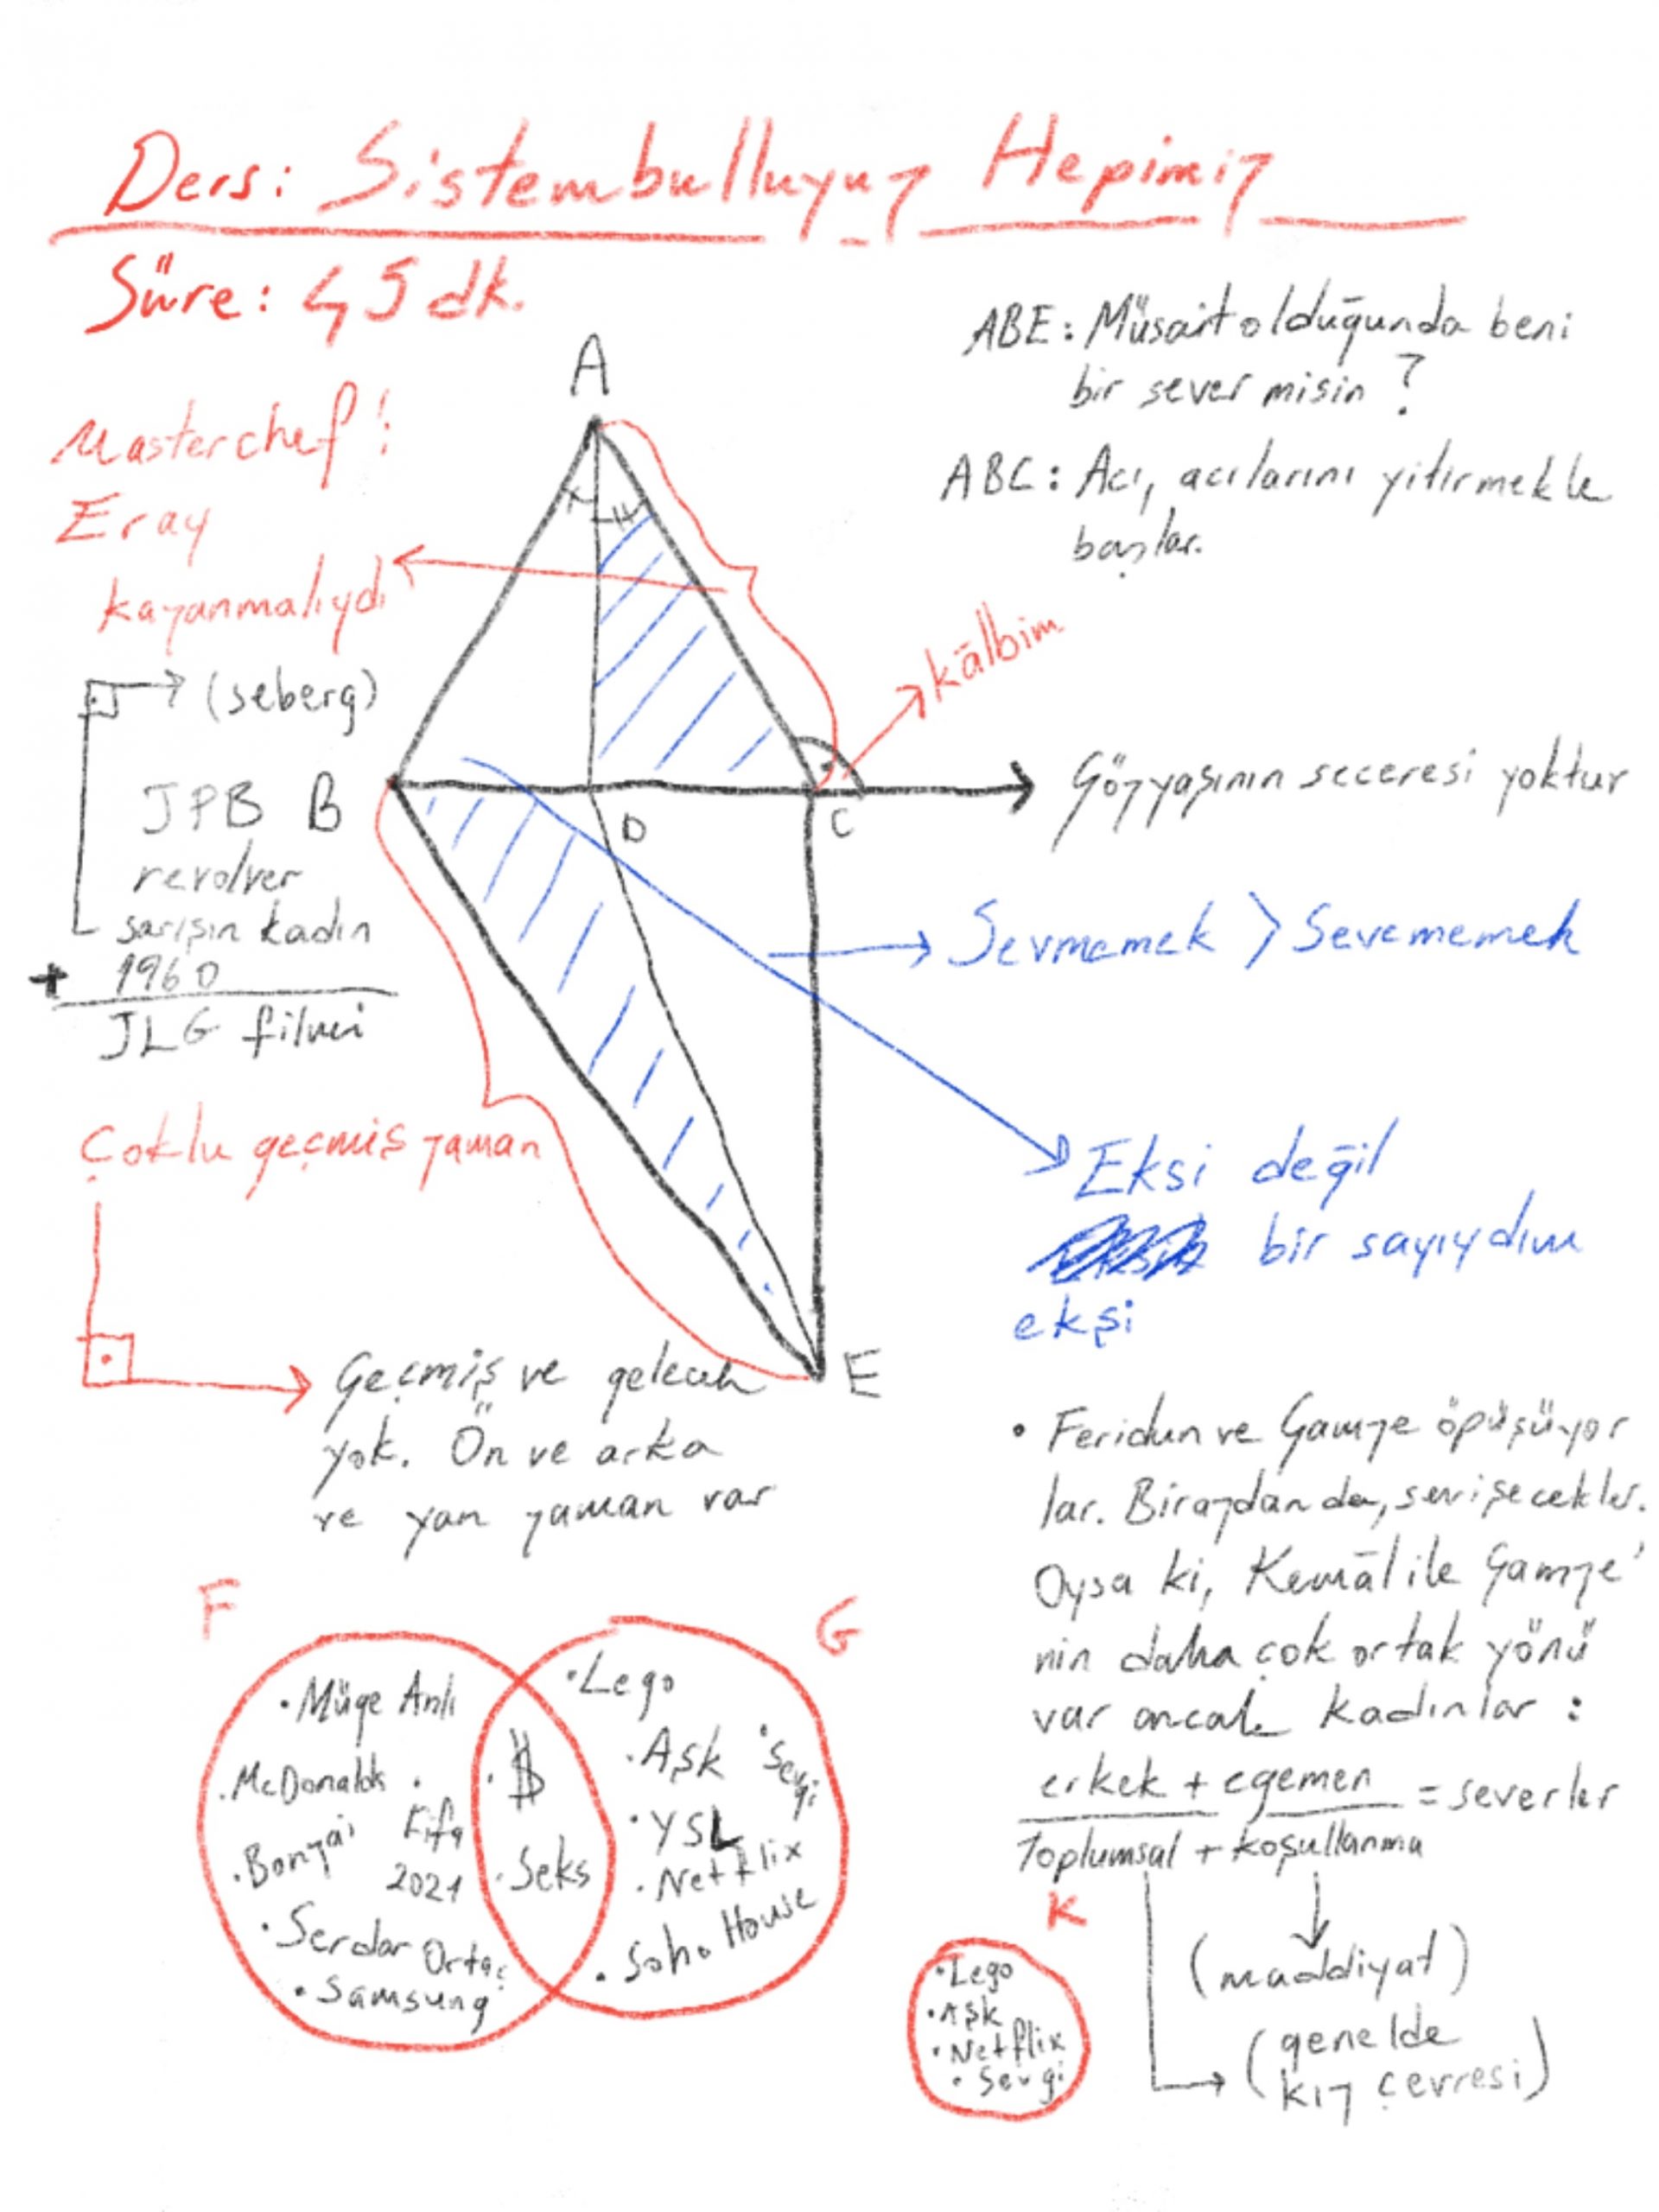 Ders: Sistembulluyuz Hepimiz
Süre: 45 dk.
ABE: Müsait olduğunda beni
bir sever misin?
ABC: Acı, acılarını yitirmekle
başlar.
Masterchef!
Eray
kazanmalıydı
A
H
kâlbim
(seberg)
JPB
revolver
sarışın kadın
+ 1960
JLG filmi
B
D
C
Gözyaşının seceresi yoktur
Sevmemek > Sevememek
Çoklu geçmiş zaman
Eksi değil
bir sayıydım
ekşi
E
Geçmiş ve gelecek
yok. Ön ve arka
ve yan zaman var
• Feridun ve Gamze öpüşüyor
lar. Birazdan da, sevişecekler.
Oysa ki, Kemâl ile Gamze'
nin daha çok ortak yönü
var ancak kadınlar:
erkek + egemen = severler
Toplumsal + koşullanma
(maddiyat)
(genelde
kız çevresi)
F
• Müge Anlı
• McDonalds
• Fifa
2021
• Bonzai
• Serdar Ortaç
• Samsung
• $
• Seks
G
• Lego
• Aşk
• Sevgi
• YSL
• Netflix
• Soho House
K
• Lego
• Aşk
• Netflix
• Sevgi